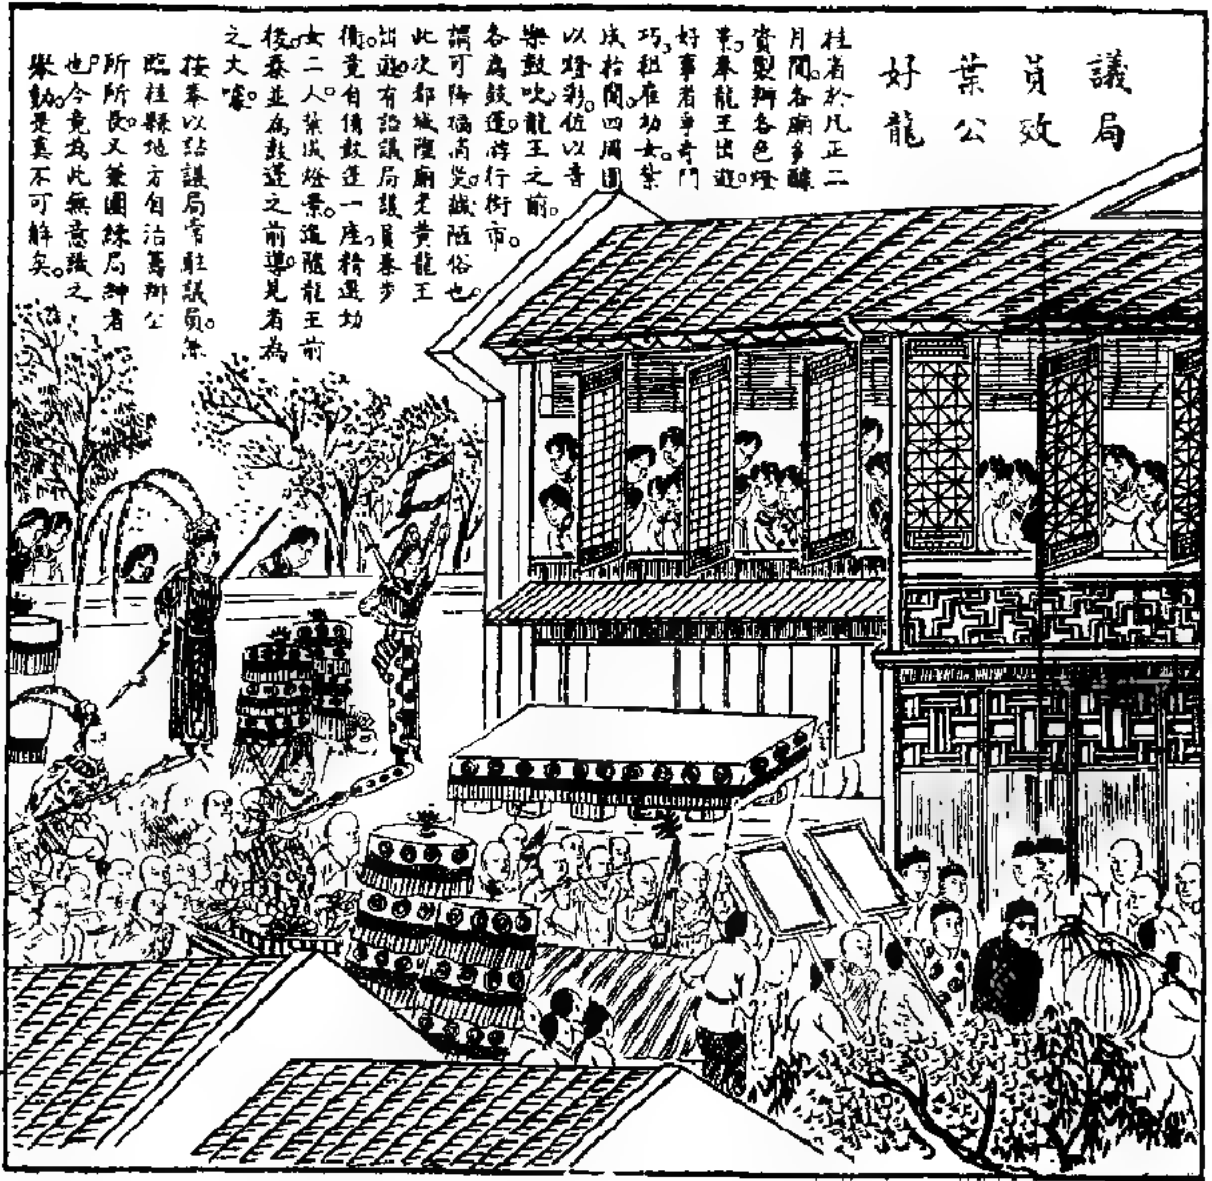 議局
員效
葉公
好龍
桂省於凡正二
月間。各廟多醵
資製辦各色燈
景,奉龍王出遊。
好事者爭奇鬥
巧,租雇幼女。紮
成抬閣。四周圍
以燈彩。佐以音
樂鼓吹。龍王之前。
各為鼓蓬。游行街市。
謂可降福消災。誠陋俗也。
此次都城隍廟老黃龍王
出遊。有諮議局議員秦步
衢。竟自備鼓蓬一座。精選幼
女二人。紮成燈景。追隨龍王前
後。秦並為鼓蓬之前導。見者為
之大嘩。
按秦以諮議局常駐議員。兼
臨桂縣地方自治籌辦公
所所長。又兼團練局紳者
也。今竟為此無意識之
舉動。是真不可解矣。